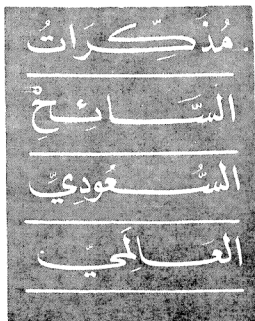 مُذَكِّرَاتُ
السَّائِحُ
السُّعُودِيَّ
العَالَمِيّ